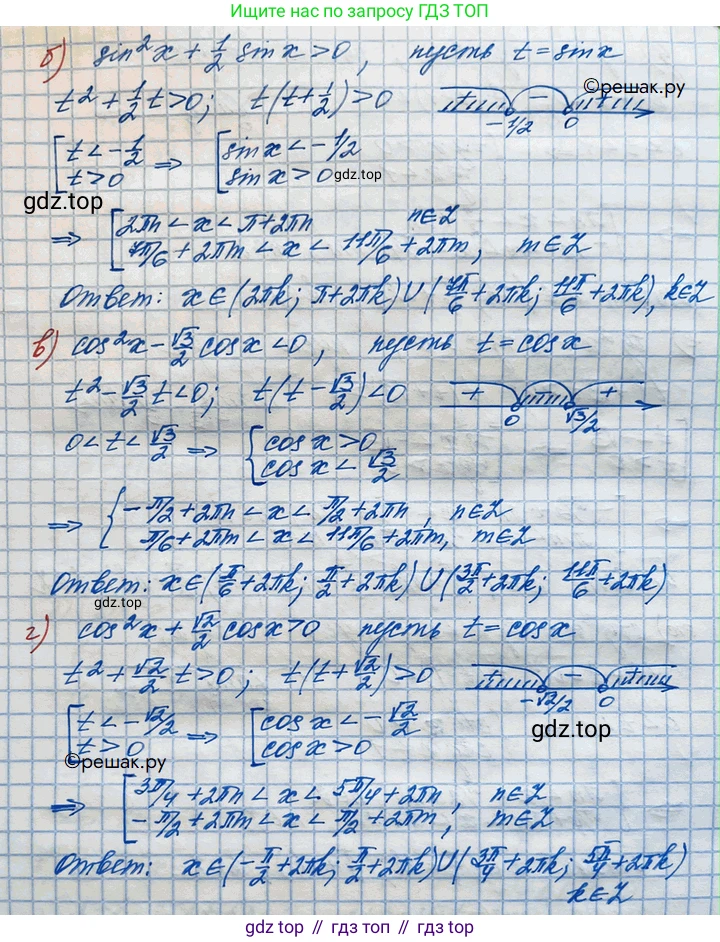 Ищите нас по запросу ГДЗ ТОП
б) sin²x + 1/2 sin x > 0, пусть t = sin x
©решак.ру
t² + 1/2 t > 0; t(t + 1/2) > 0 + − + −1/2 0
[ t < −1/2 ⇒ [ sin x < −1/2
t > 0 sin x > 0
gdz.top
gdz.top
⇒ [ 2πn < x < π + 2πn n ∈ Z
7π/6 + 2πm < x < 11π/6 + 2πm, m ∈ Z
Ответ: x ∈ (2πk; π + 2πk) ∪ (7π/6 + 2πk; 11π/6 + 2πk), k ∈ Z
в) cos²x − √3/2 cos x < 0, пусть t = cos x
t² − √3/2 t < 0; t(t − √3/2) < 0 + + 0 √3/2
0 < t < √3/2 ⇒ { cos x > 0
cos x < √3/2
⇒ { −π/2 + 2πn < x < π/2 + 2πn, n ∈ Z
π/6 + 2πm < x < 11π/6 + 2πm, m ∈ Z
Ответ: x ∈ (π/6 + 2πk; π/2 + 2πk) ∪ (3π/2 + 2πk; 11π/6 + 2πk)
gdz.top
г) cos²x + √2/2 cos x > 0 пусть t = cos x
t² + √2/2 t > 0; t(t + √2/2) > 0 + − + −√2/2 0
[ t < −√2/2 ⇒ [ cos x < −√2/2
t > 0 cos x > 0
gdz.top
©решак.ру
⇒ [ 3π/4 + 2πn < x < 5π/4 + 2πn, n ∈ Z
−π/2 + 2πm < x < π/2 + 2πm, m ∈ Z
Ответ: x ∈ (−π/2 + 2πk; π/2 + 2πk) ∪ (3π/4 + 2πk; 5π/4 + 2πk)
k ∈ Z
gdz.top // гдз топ // gdz.top